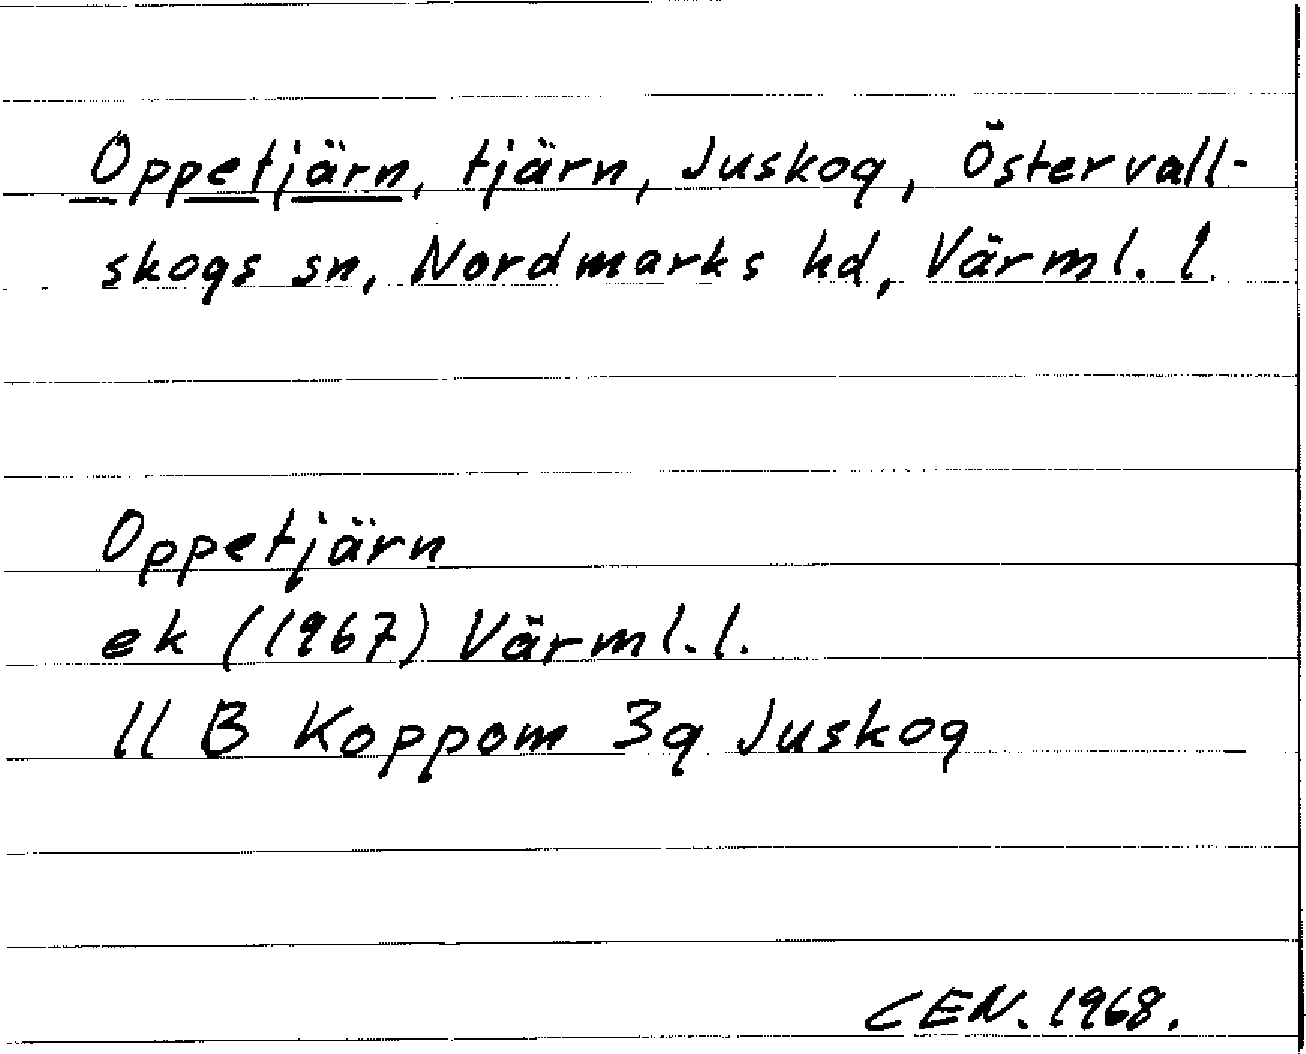 Oppetjärn, tjärn, Juskog, Östervall-
skogs sn, Nordmarks hd, Värml. l.
Oppetjärn
ek (1967) Värml. l.
11 B Koppom 3g Juskog
CEN. 1968.